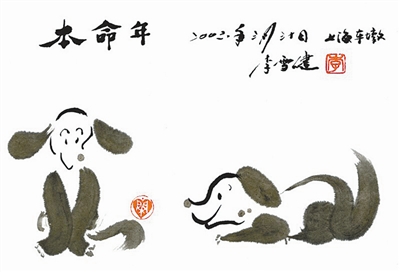 本命年
2003.年3月30日 上海车墩
李雪健